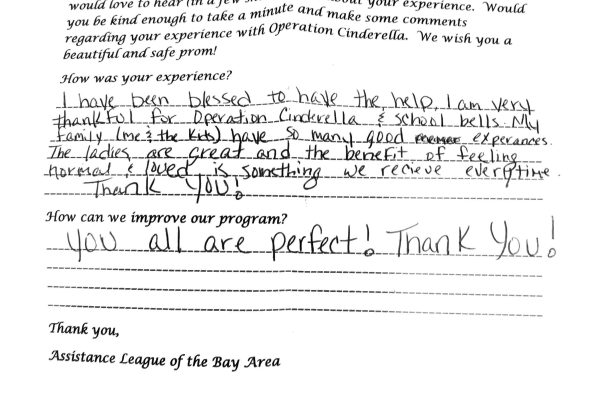 would love to hear (in a few about your experience. Would
you be kind enough to take a minute and make some comments
regarding your experience with Operation Cinderella. We wish you a
beautiful and safe prom!
How was your experience?
I have been blessed to have the help, I am very
thankful for Operation Cinderella & school bells. My
family (me & the kids) have so many good experances.
The ladies are great and the benefit of feeling
normal & loved is something we recieve everytime.
Thank YOU!
How can we improve our program?
You all are perfect! Thank You!
Thank you,
Assistance League of the Bay Area